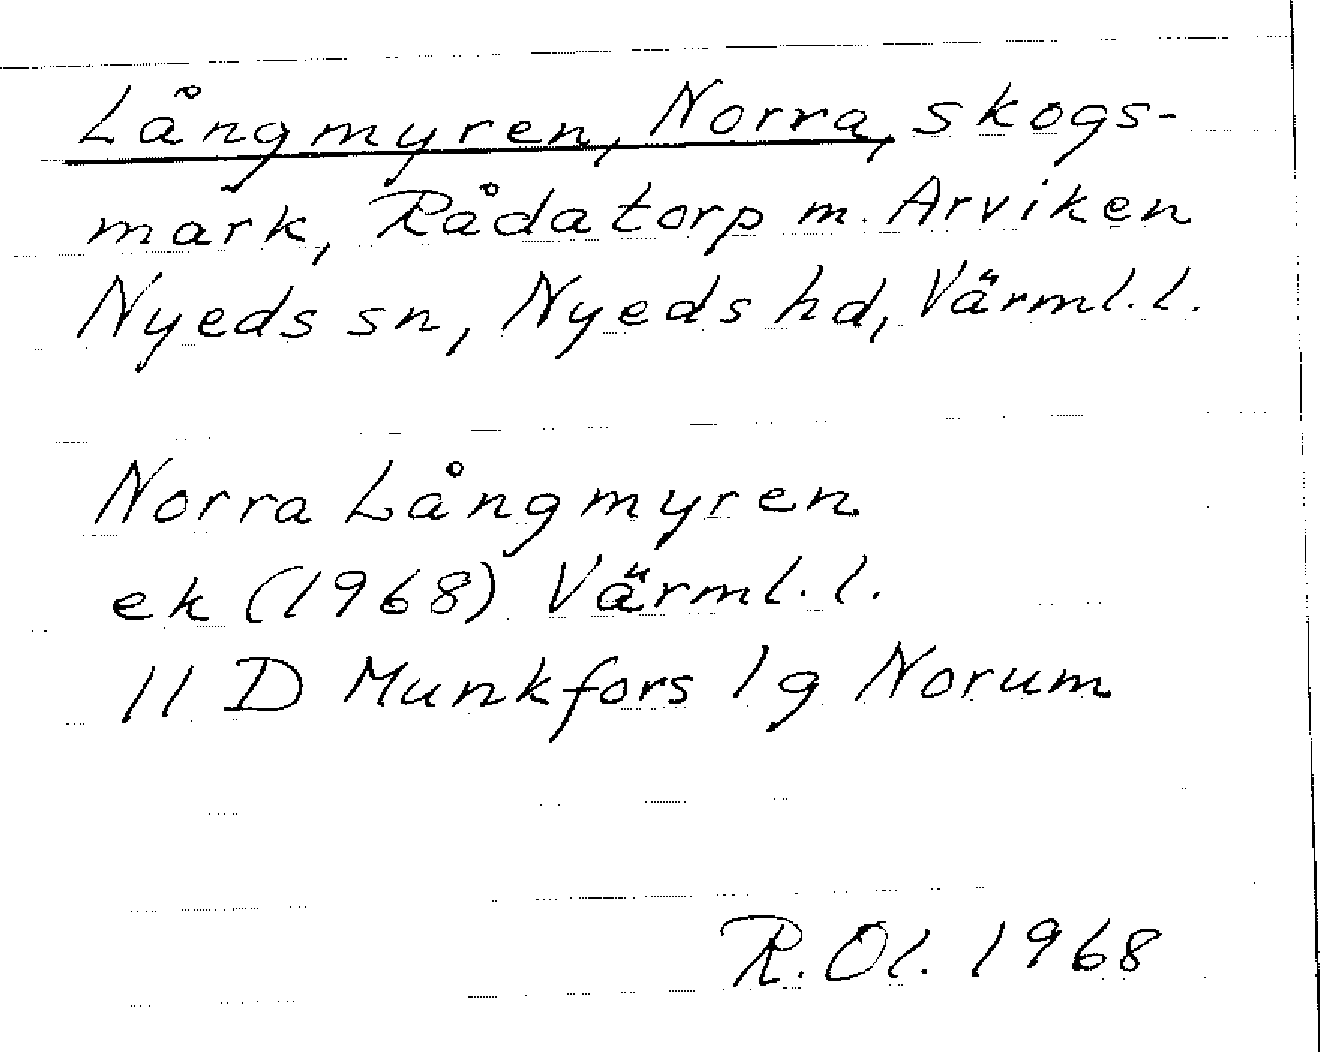 Långmyren, Norra, skogs-
mark, Rådatorp m. Arviken
Nyeds sn, Nyeds hd, Värml. l.
Norra Långmyren
ek (1968) Värml. l.
11 D Munkfors 1g Norum
R. Ol. 1968